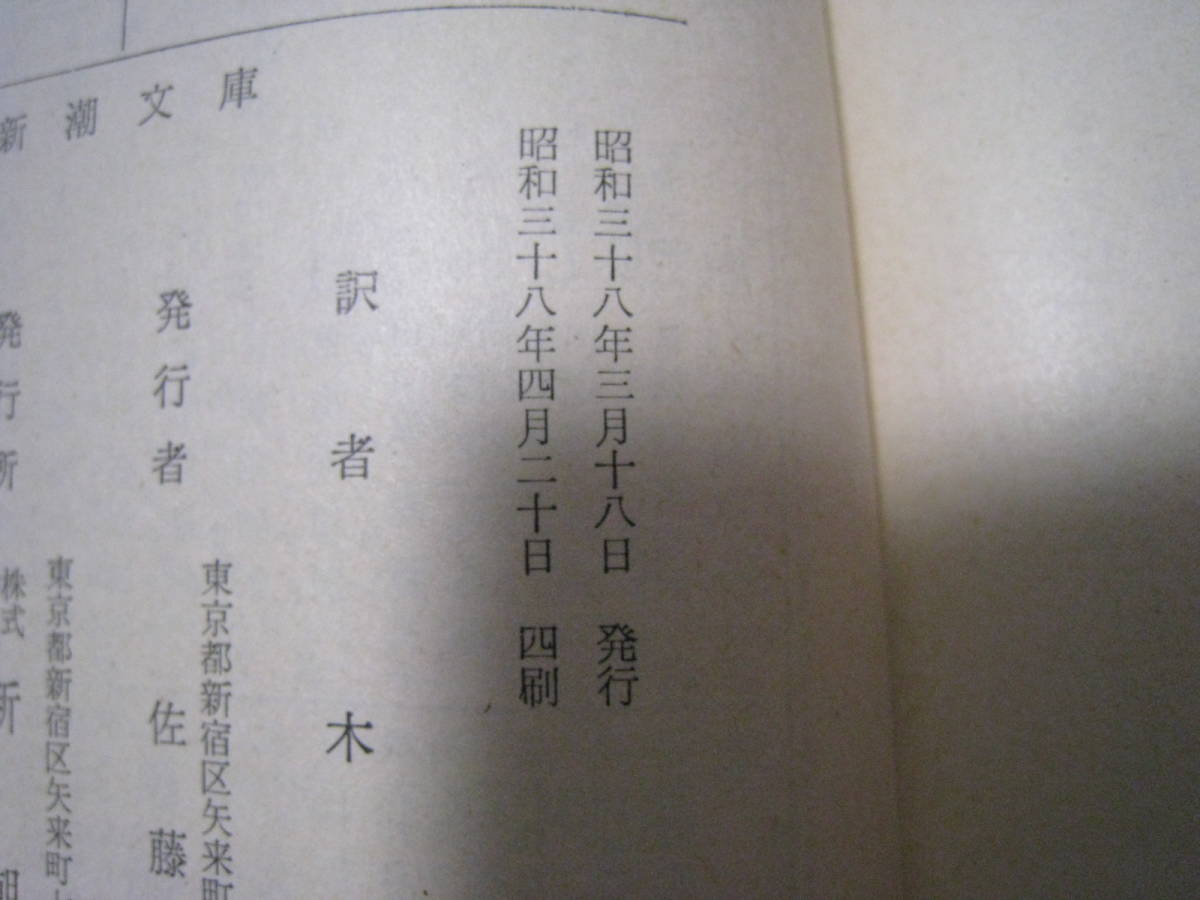 新潮文庫
昭和三十八年三月十八日 発行
昭和三十八年四月二十日 四刷
訳者 木
東京都新宿区矢来町
発行者 佐藤
東京都新宿区矢来町
発行所 株式